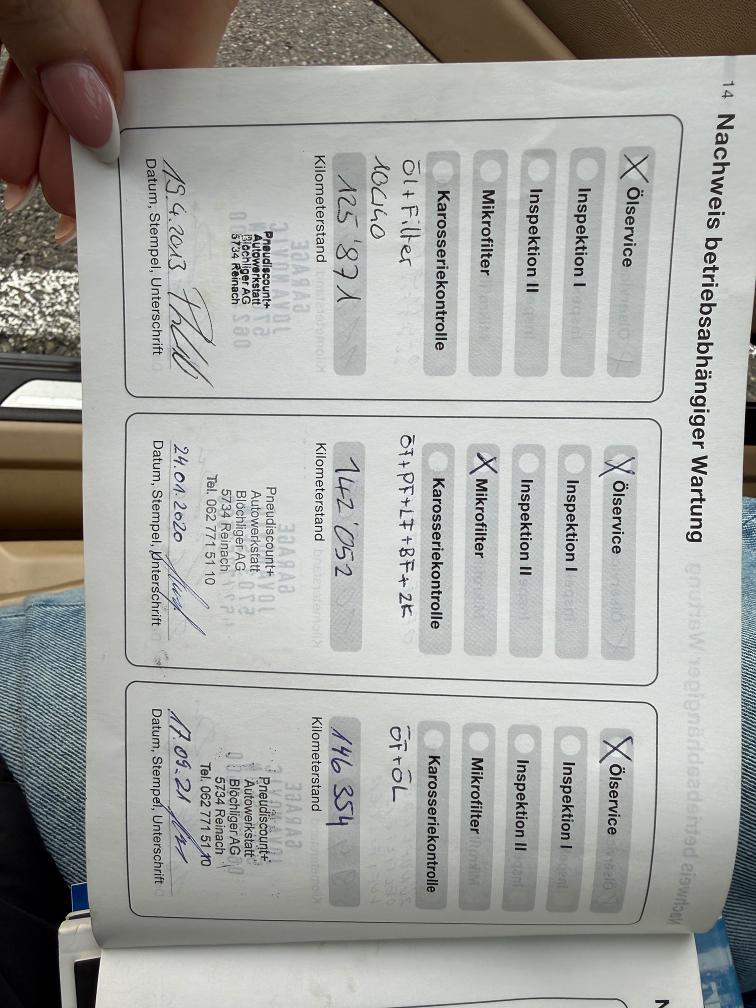 14 Nachweis betriebsabhängiger Wartung
X Ölservice
Inspektion I
Inspektion II
Mikrofilter
Karosseriekontrolle
Öl+Filter
10W40
125'871
Kilometerstand
Pneudiscount+
Autowerkstatt
Blöchliger AG
5734 Reinach
19.4.2013
Datum, Stempel, Unterschrift
X Ölservice
Inspektion I
Inspektion II
X Mikrofilter
Karosseriekontrolle
ÖF+PF+LF+BF+ZK
142'052
Kilometerstand
Pneudiscount+
Autowerkstatt
Blöchliger AG
5734 Reinach
Tel. 062 771 51 10
24.01.2020
Datum, Stempel, Unterschrift
X Ölservice
Inspektion I
Inspektion II
Mikrofilter
Karosseriekontrolle
ÖF+ÖL
146 354
Kilometerstand
Pneudiscount+
Autowerkstatt
Blöchliger AG
5734 Reinach
Tel. 062 771 51 10
17.09.21
Datum, Stempel, Unterschrift